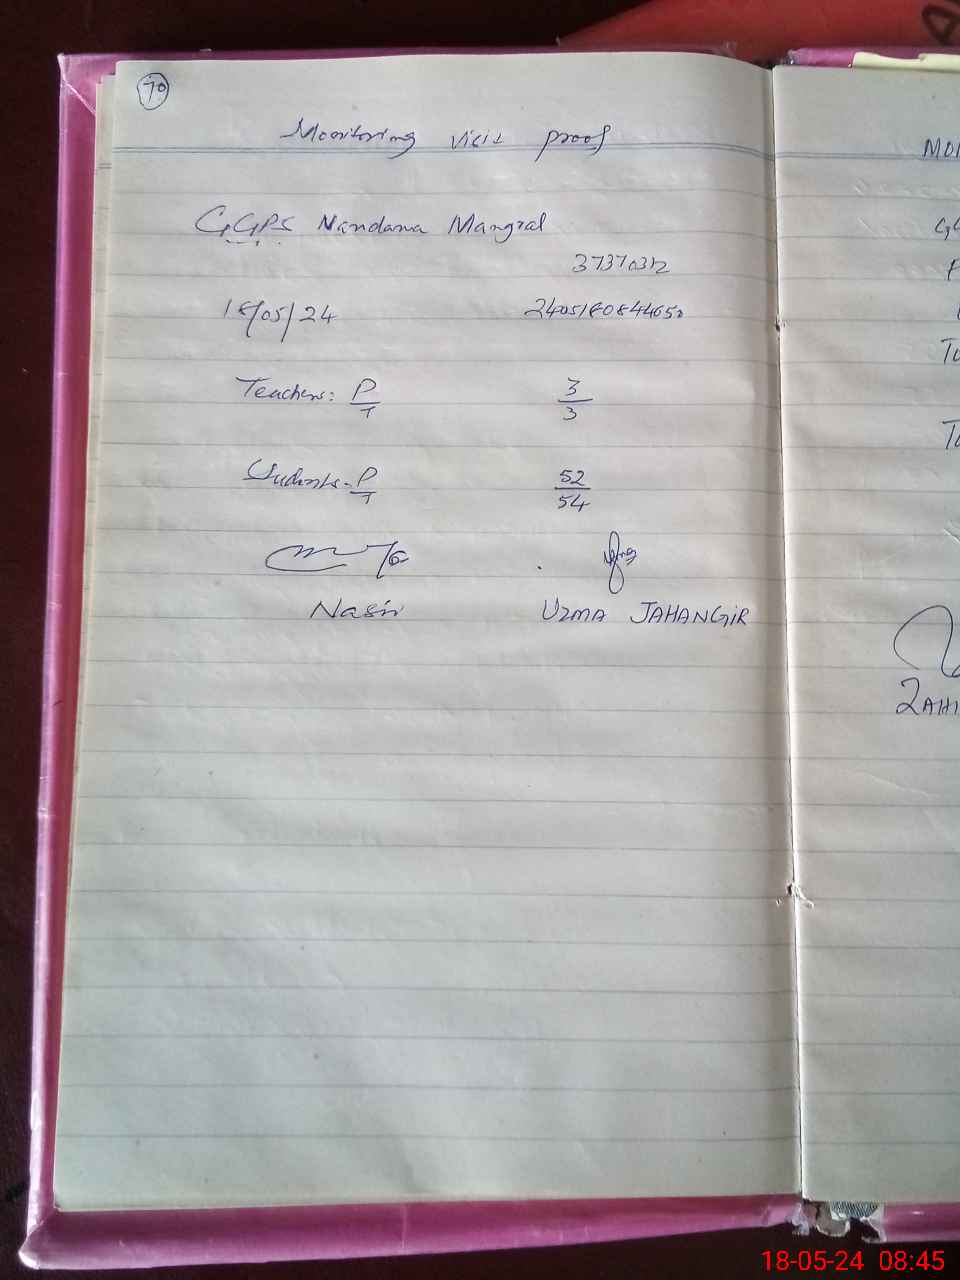 70
Monitoring visit proof
GGPS Nandana Mangral
37370312
18/05/24 240518084405
Teachers: P/T 3/3
Students - P/T 52/54
Nasir UZMA JAHANGIR
18-05-24 08:45